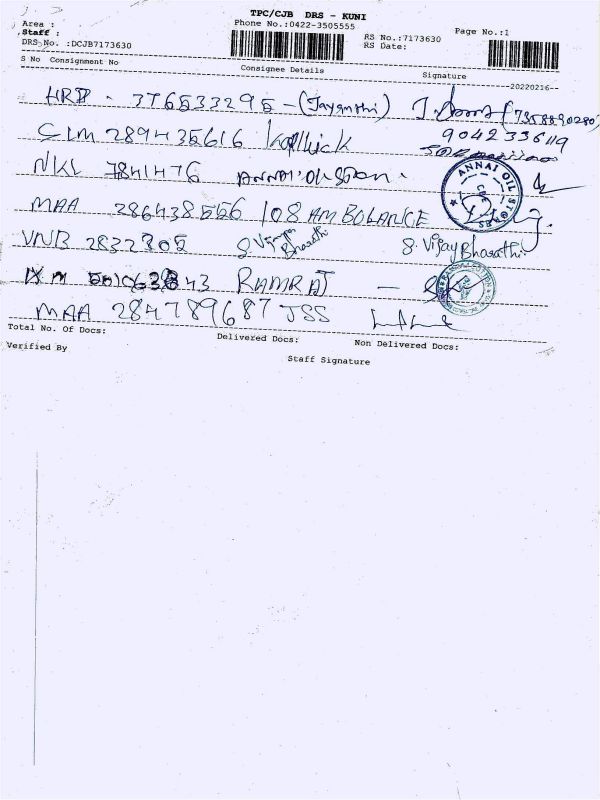 TPC/CJB DRS - KUNI
Area :
Phone No.:0422-3505555
Page No.:1
Staff :
RS No.:7173630
DRS No. :DCJB7173630
RS Date:
S No Consignment No Consignee Details Signature
20220216
HRD - 376533295 - (Jayanthi) (7358890280)
CLM 289435616 Karthick 9042336119
NKL 7841476 ANNAI OIL Store
ANNAI OIL STORES
MAA 286438556 108 AMBOLANCE
VNB 2832805 S. Vijay Bharathi S. Vijay Bharathi
RAMRAJ -
MAA 284789687 JSS
Total No. Of Docs: Delivered Docs: Non Delivered Docs:
Verified By
Staff Signature